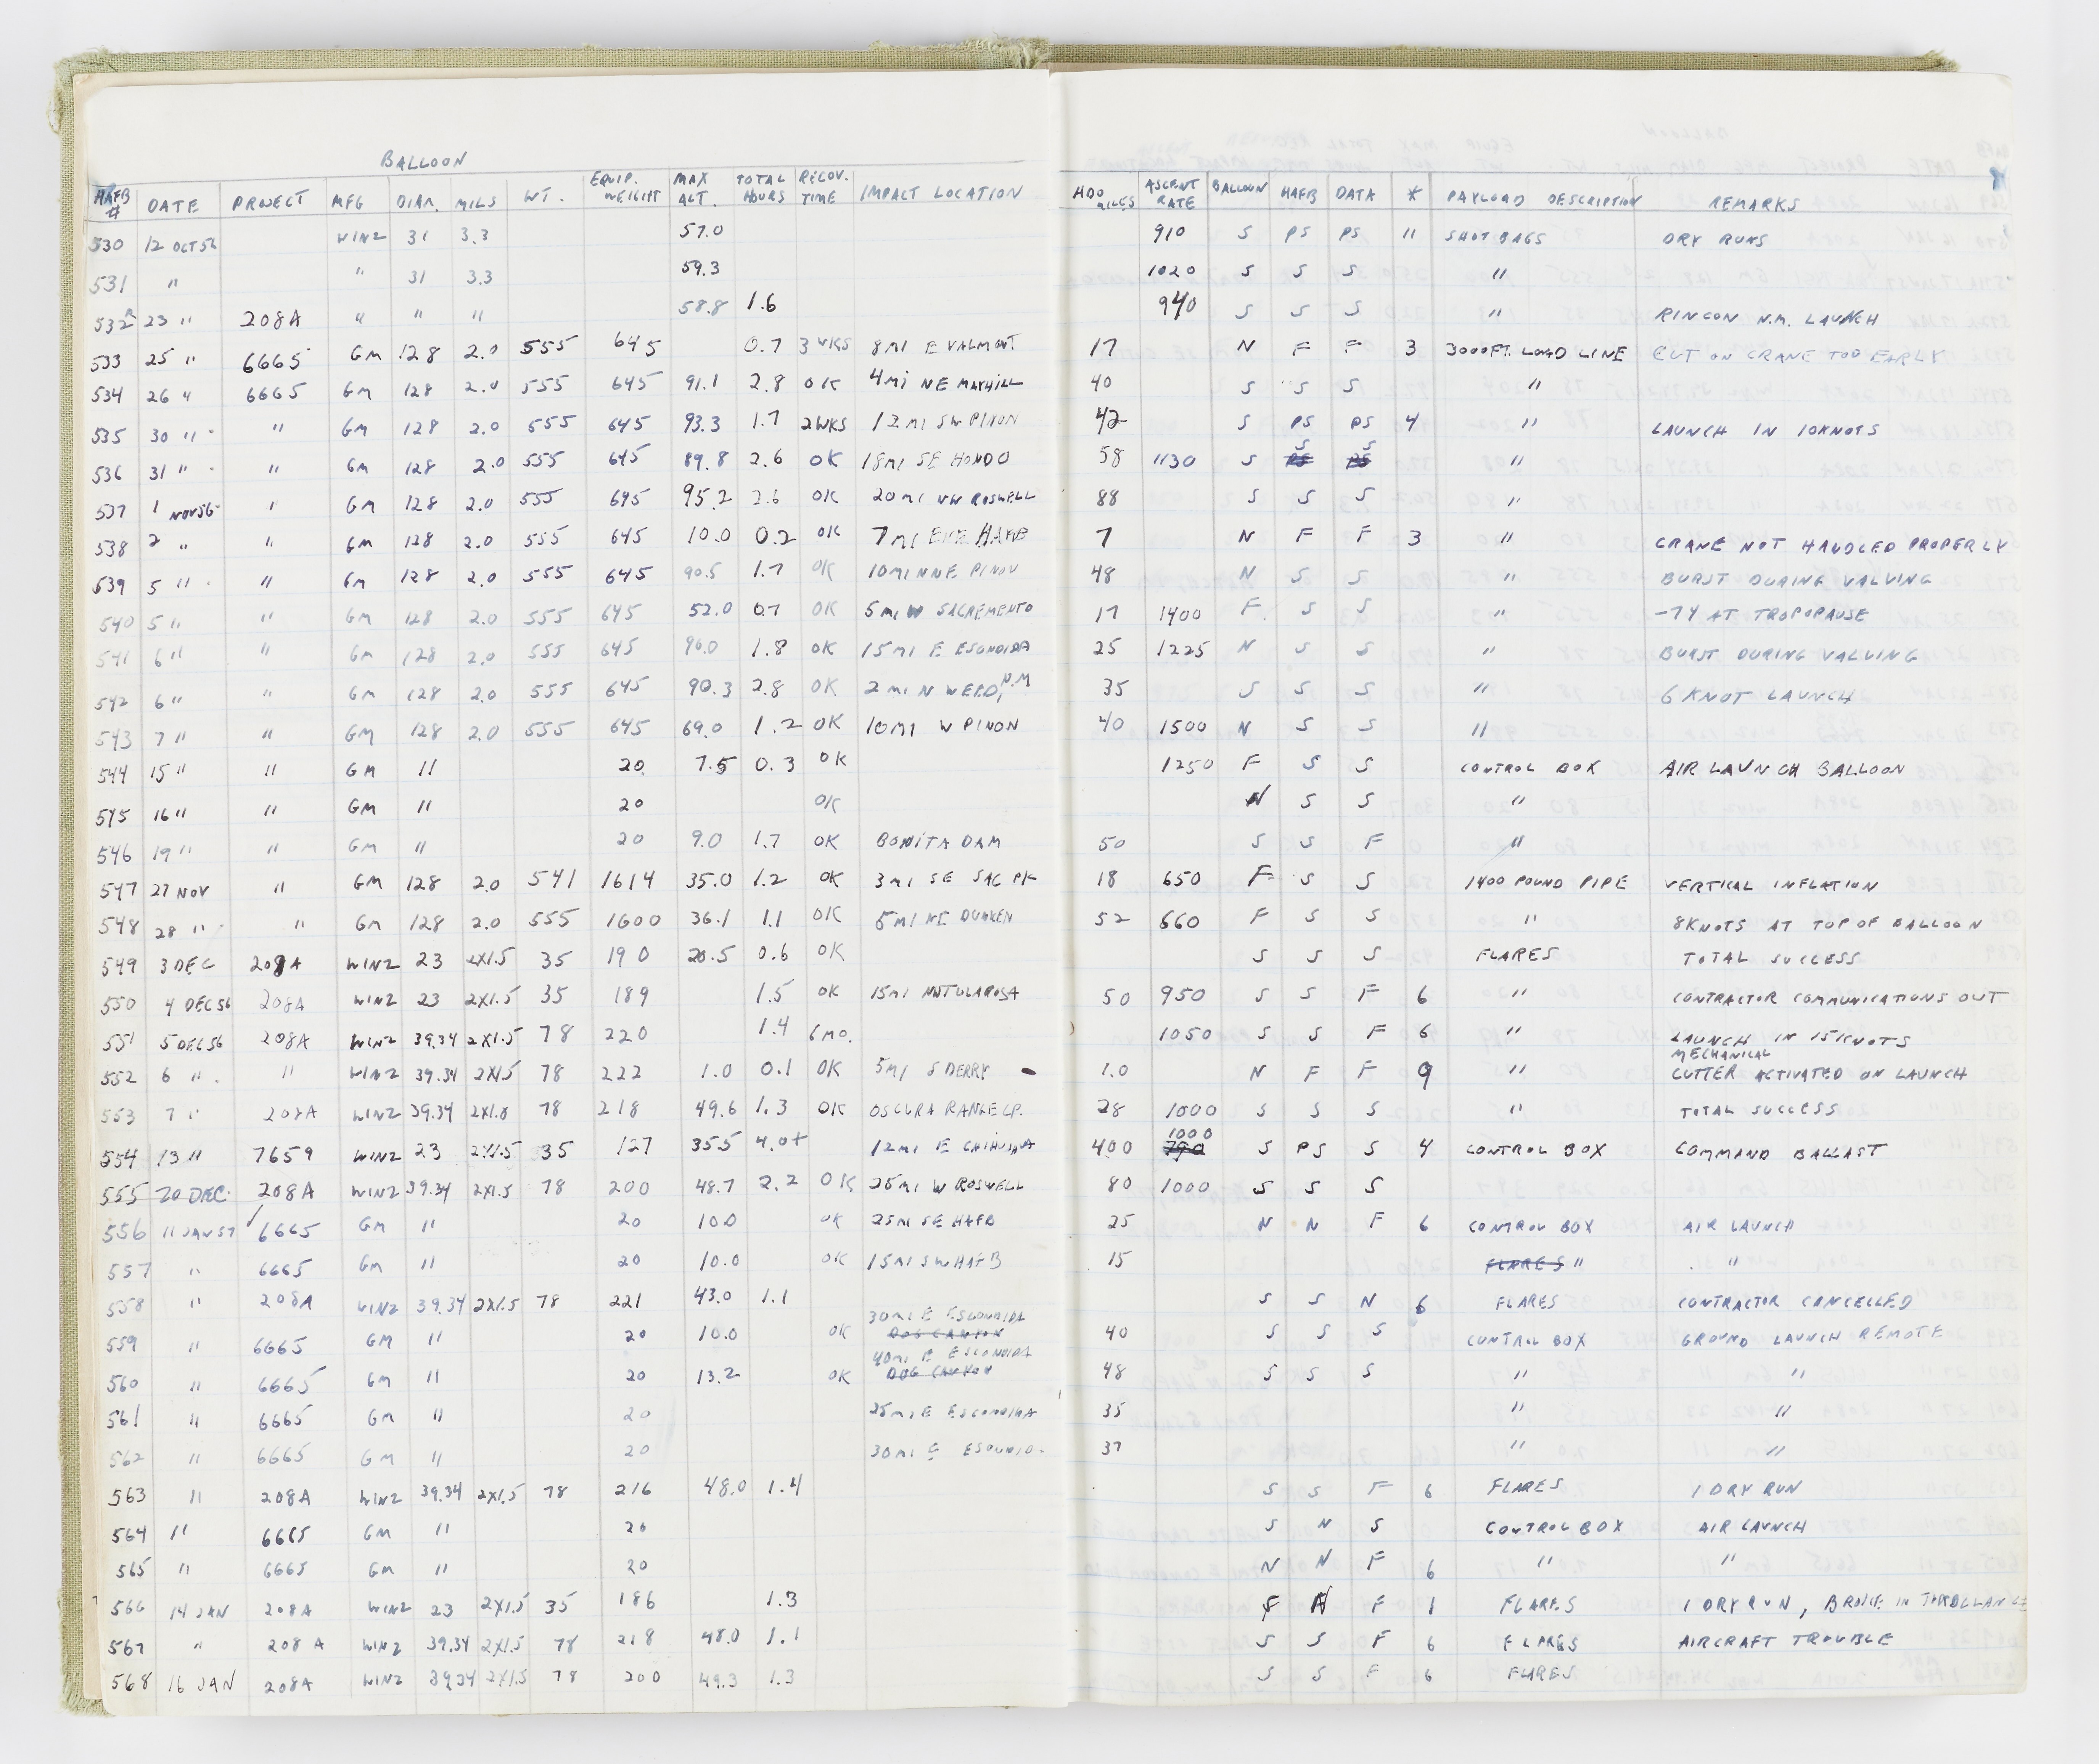 BALLOON
HAFB # DATE PROJECT MFG DIAM. MILS WT. EQUIP. WEIGHT MAX ALT. TOTAL HOURS RECOV. TIME IMPACT LOCATION HDQ MILES ASCENT RATE BALLOON HAFB DATA * PAYLOAD DESCRIPTION REMARKS
530 12 OCT 56 WINZ 31 3.3 57.0 910 S PS PS 11 SHOT BAGS DRY RUNS
531 " " 31 3.3 59.3 1020 S S S "
532 23 " 208A " " " 58.8 1.6 940 S S S " RINCON N.M. LAUNCH
533 25 " 6665 GM 128 2.0 555 645 0.7 3 WKS 8 MI E VALMONT 17 N F F 3 3000 FT. LOAD LINE CUT ON CRANE TOO EARLY
534 26 " 6665 GM 128 2.0 555 645 91.1 2.8 OK 4 MI NE MAYHILL 40 S S S "
535 30 " " GM 128 2.0 555 645 93.3 1.7 2 WKS 12 MI SW PINON 42 S PS PS 4 " LAUNCH IN 10 KNOTS
536 31 " " GM 128 2.0 555 645 89.8 2.6 OK 18 MI SE HONDO 58 1130 S S S "
537 1 NOV 56 " GM 128 2.0 555 645 95.2 2.6 OK 20 MI NW ROSWELL 88 S S S "
538 2 " " GM 128 2.0 555 645 10.0 0.2 OK 7 MI HAFB 7 N F F 3 " CRANE NOT HANDLED PROPERLY
539 5 " " GM 128 2.0 555 645 90.5 1.7 OK 10 MI NNE PINON 48 N S S " BURST DURING VALVING
540 5 " " GM 128 2.0 555 645 52.0 0.7 OK 5 MI W SACREMENTO 17 1400 F S S " -74 AT TROPOPAUSE
541 6 " " GM 128 2.0 555 645 90.0 1.8 OK 15 MI E ESCONDIDA 25 1225 N S S " BURST DURING VALVING
542 6 " " GM 128 2.0 555 645 90.3 2.8 OK 2 MI N WEED, N.M 35 S S S " 6 KNOT LAUNCH
543 7 " " GM 128 2.0 555 645 69.0 1.2 OK 10 MI W PINON 40 1500 N S S "
544 15 " " GM 11 20 7.5 0.3 OK 1250 F S S CONTROL BOX AIR LAUNCH BALLOON
545 16 " " GM 11 20 OK N S S "
546 19 " " GM 11 20 9.0 1.7 OK BONITA DAM 50 S S F "
547 27 NOV " GM 128 2.0 541 1614 35.0 1.2 OK 3 MI SE SAC PK 18 650 F S S 1400 POUND PIPE VERTICAL INFLATION
548 28 " " GM 128 2.0 555 1600 36.1 1.1 OK 5 MI NE DUNKEN 52 660 F S S " 8 KNOTS AT TOP OF BALLOON
549 3 DEC 208A WINZ 23 2X1.5 35 190 20.5 0.6 OK S S S FLARES TOTAL SUCCESS
550 4 DEC 56 208A WINZ 23 2X1.5 35 189 1.5 OK 15 MI TULAROSA 50 950 S S F 6 " CONTRACTOR COMMUNICATIONS OUT
551 5 DEC 56 208A WINZ 39.34 2X1.5 78 220 1.4 6 MO. 1050 S S F 6 " LAUNCH IN 15 KNOTS
552 6 " " WINZ 39.34 2X1.5 78 222 1.0 0.1 OK 5 MI S DERRY 1.0 N F F 9 " MECHANICAL CUTTER ACTIVATED ON LAUNCH
553 7 " 208A WINZ 39.34 2X1.5 78 218 49.6 1.3 OK OSCURA RANGE CP. 28 1000 S S S " TOTAL SUCCESS
554 13 " 7659 WINZ 23 2X1.5 35 127 35.5 4.0+ 12 MI E CHIHUHUA 400 1000 S PS S 4 CONTROL BOX COMMAND BALLAST
555 20 DEC. 208A WINZ 39.34 2X1.5 78 200 48.7 2.2 OK 25 MI W ROSWELL 80 1000 S S S
556 11 JAN 57 6665 GM 11 20 10.0 OK 25 MI SE HAFB 25 N N F 6 CONTROL BOX AIR LAUNCH
557 " 6665 GM 11 20 10.0 OK 15 MI SW HAFB 15 FLARES " "
558 " 208A WINZ 39.34 2X1.5 78 221 43.0 1.1 S S N 6 FLARES CONTRACTOR CANCELLED
559 " 6665 GM 11 20 10.0 OK 30 MI E ESCONDIDA DOG CANYON 40 S S S CONTROL BOX GROUND LAUNCH REMOTE
560 " 6665 GM 11 20 13.2 OK 40 MI E ESCONDIDA DOG CANYON 48 S S S " "
561 " 6665 GM 11 20 25 MI E ESCONDIDA 35 " "
562 " 6665 GM 11 20 30 MI 37 " "
563 " 208A WINZ 39.34 2X1.5 78 216 48.0 1.4 S S F 6 FLARES 1 DRY RUN
564 " 6665 GM 11 20 S N S CONTROL BOX AIR LAUNCH
565 " 6665 GM 11 20 N N F 6 " "
566 14 JAN 208A WINZ 23 2X1.5 35 186 1.3 F N F 1 FLARES 1 DRY RUN, BROKE IN
567 " 208A WINZ 39.34 2X1.5 78 218 48.0 1.1 S S F 6 FLARES AIRCRAFT TROUBLE
568 16 JAN 208A WINZ 39.34 2X1.5 78 200 49.3 1.3 S S F 6 FLARES